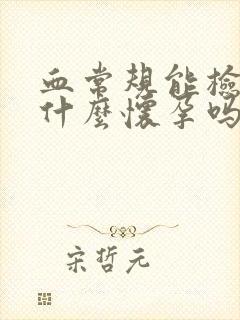 血常規能檢
什麼懷孕嗎
宋哲元